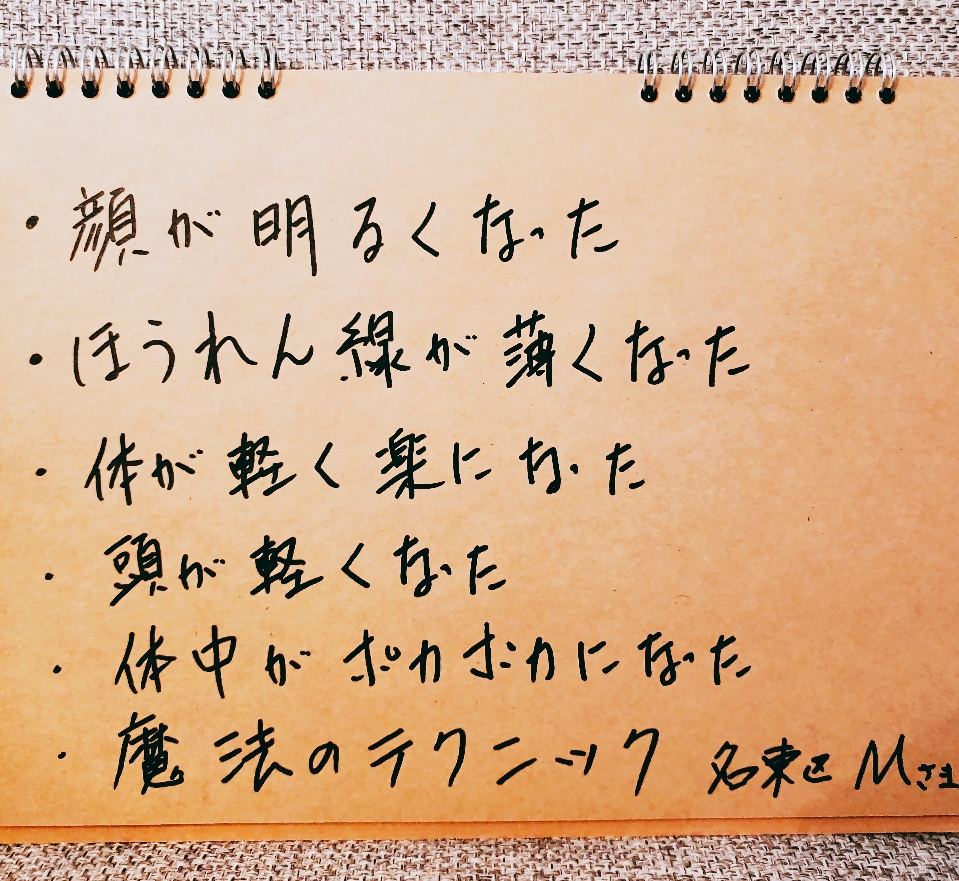 ・顔が明るくなった
・ほうれん線が薄くなった
・体が軽く楽になった
・頭が軽くなった
・体中がポカポカになった
・魔法のテクニック 名東区 Mさま